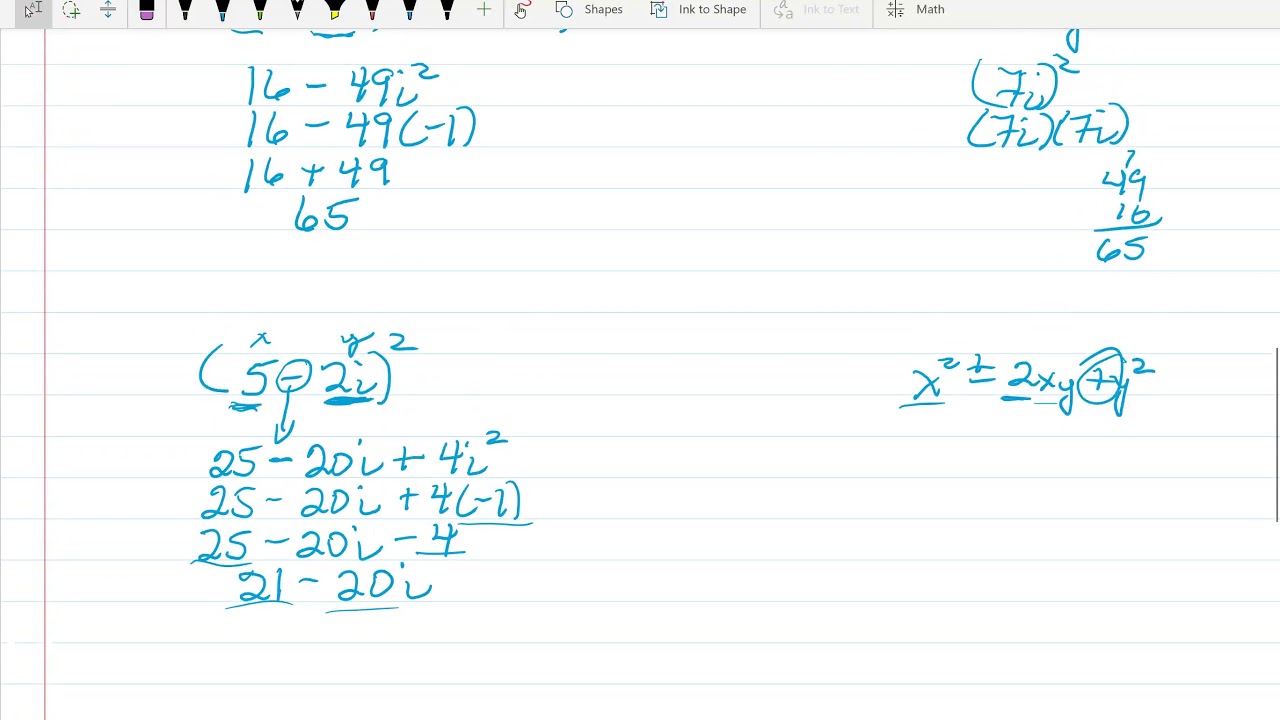 Shapes Ink to Shape Ink to Text Math
16 - 49i²
16 - 49(-1)
16 + 49
65
(7i)²
(7i)(7i)
1
49
16
65
x y
(5 - 2i)²
25 - 20i + 4i²
25 - 20i + 4(-1)
25 - 20i - 4
21 - 20i
x² ± 2xy + y²